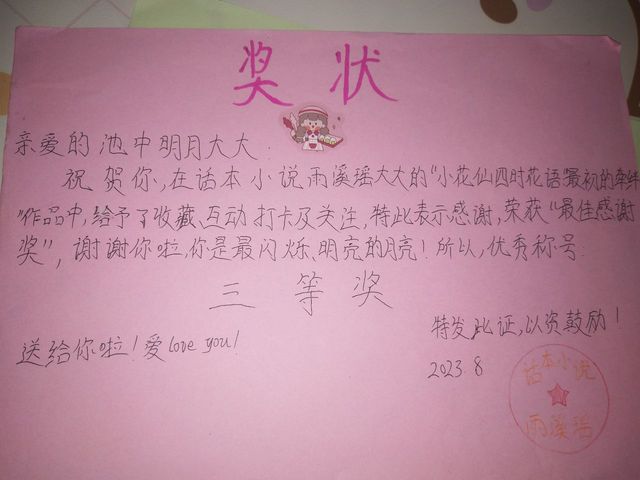 奖 状
亲爱的池中明月大大:
祝贺你,在话本小说雨溪瑶大大的“小花仙四时花语最初的牵绊
”作品中,给予了收藏、互动打卡及关注,特此表示感谢,荣获“最佳感谢
奖”,谢谢你啦,你是最闪烁、明亮的月亮!所以,优秀称号:
三 等 奖
特发此证,以资鼓励!
送给你啦!爱love you!
2023.8
话本小说
雨溪瑶